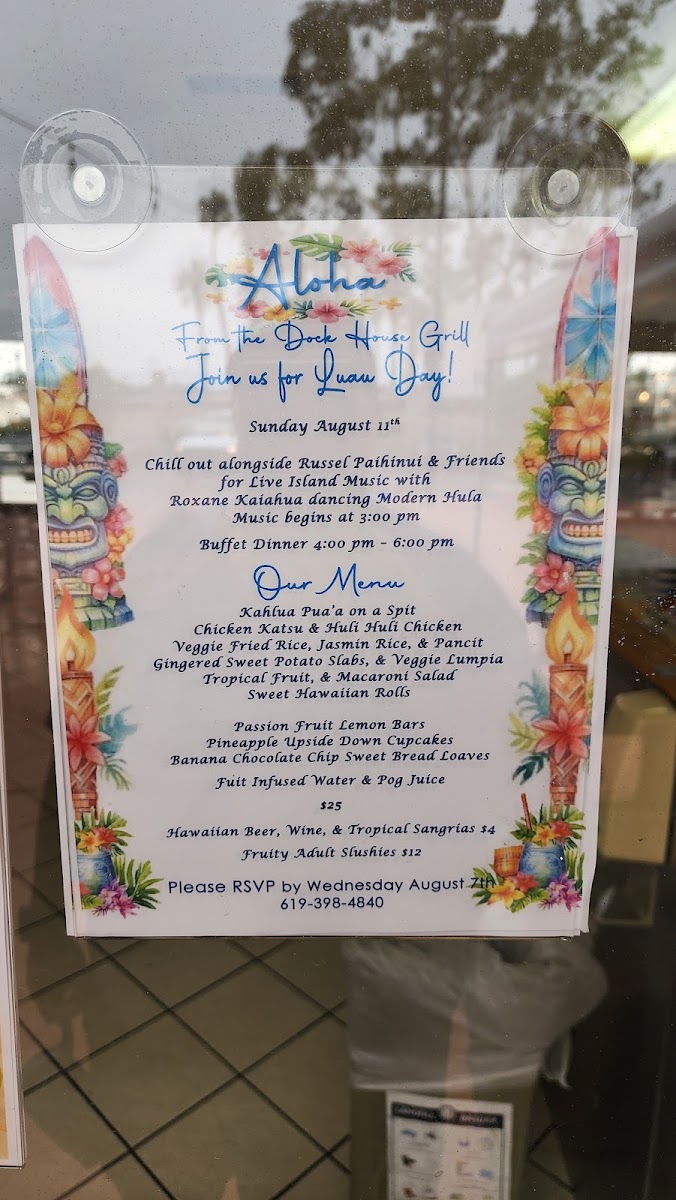 Aloha
From the Dock House Grill
Join us for Luau Day!
Sunday August 11th
Chill out alongside Russel Paihinui & Friends
for Live Island Music with
Roxane Kaiahua dancing Modern Hula
Music begins at 3:00 pm
Buffet Dinner 4:00 pm - 6:00 pm
Our Menu
Kahlua Pua'a on a Spit
Chicken Katsu & Huli Huli Chicken
Veggie Fried Rice, Jasmin Rice, & Pancit
Gingered Sweet Potato Slabs, & Veggie Lumpia
Tropical Fruit, & Macaroni Salad
Sweet Hawaiian Rolls
Passion Fruit Lemon Bars
Pineapple Upside Down Cupcakes
Banana Chocolate Chip Sweet Bread Loaves
Fuit Infused Water & Pog Juice
$25
Hawaiian Beer, Wine, & Tropical Sangrias $4
Fruity Adult Slushies $12
Please RSVP by Wednesday August 7th
619-398-4840